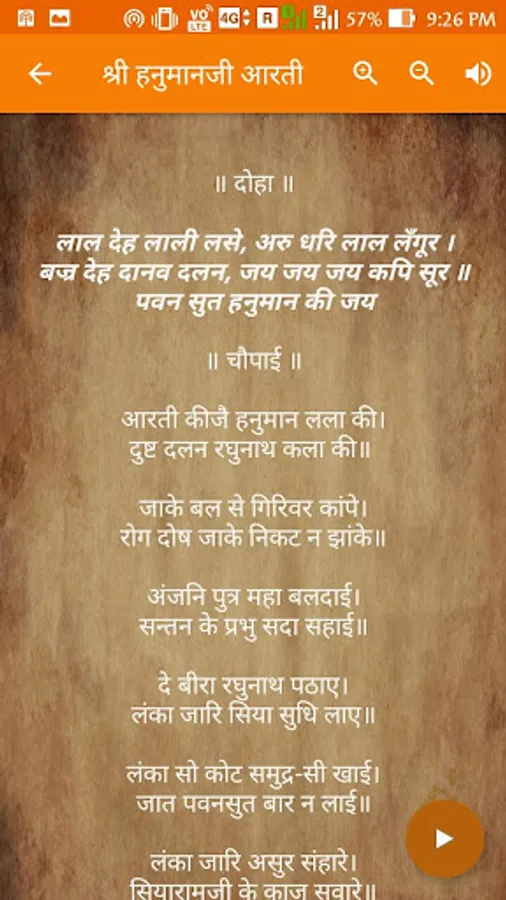 VO LTE 4G R 1 2 57% 9:26 PM
श्री हनुमानजी आरती
॥ दोहा ॥
लाल देह लाली लसे, अरु धरि लाल लँगूर ।
बज्र देह दानव दलन, जय जय जय कपि सूर ॥
पवन सुत हनुमान की जय
॥ चौपाई ॥
आरती कीजै हनुमान लला की।
दुष्ट दलन रघुनाथ कला की॥
जाके बल से गिरिवर कांपे।
रोग दोष जाके निकट न झांके॥
अंजनि पुत्र महा बलदाई।
सन्तन के प्रभु सदा सहाई॥
दे बीरा रघुनाथ पठाए।
लंका जारि सिया सुधि लाए॥
लंका सो कोट समुद्र-सी खाई।
जात पवनसुत बार न लाई॥
लंका जारि असुर संहारे।
सियारामजी के काज सवारे॥